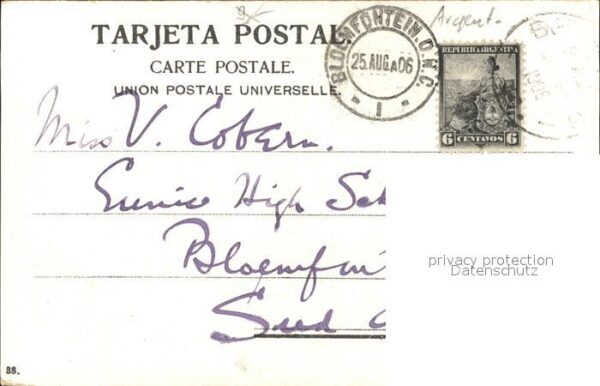 Argent.
TARJETA POSTAL.
CARTE POSTALE.
UNION POSTALE UNIVERSELLE.
BLOEMFONTEIN.O.R.C.
25.AUG.A06
1
REPUBLICA ARGENTINA
6 CENTAVOS 6
Miss V. Cobern.
Eunice High Sch
Bloemfon
Sud
privacy protection
Datenschutz
38.